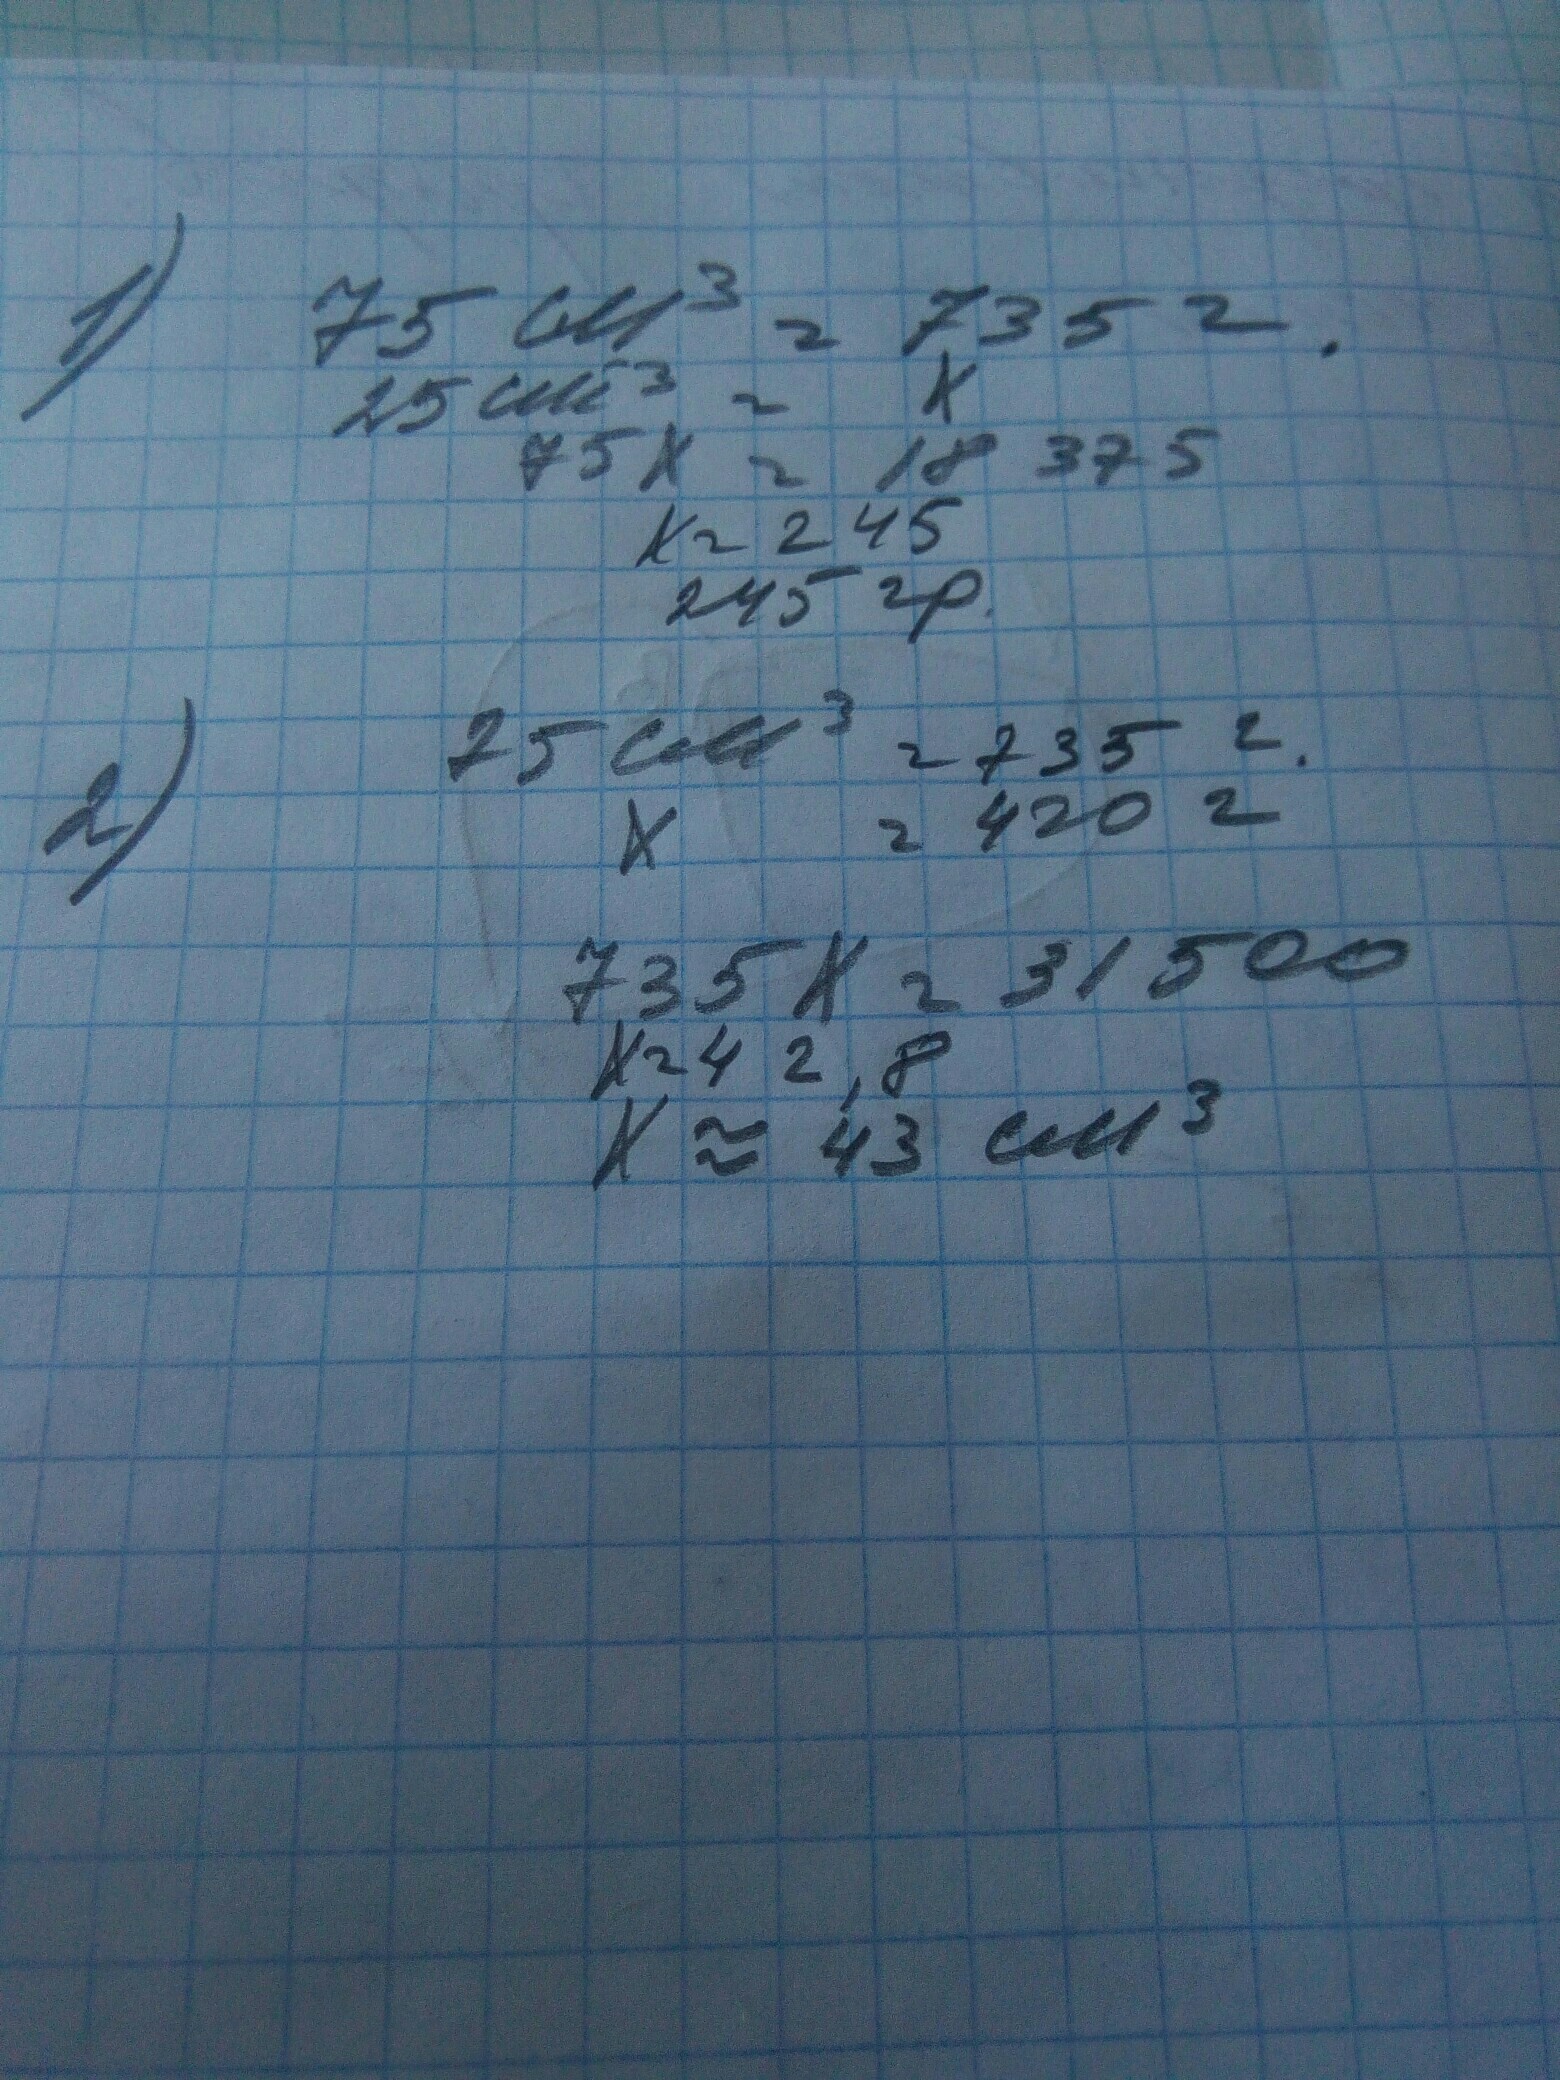 1) 75 см³ = 735 г.
25 см³ = х
75х = 18 375
х = 245
245 гр.
2) 75 см³ = 735 г.
х = 420 г
735х = 31500
х = 42,8
х ≈ 43 см³